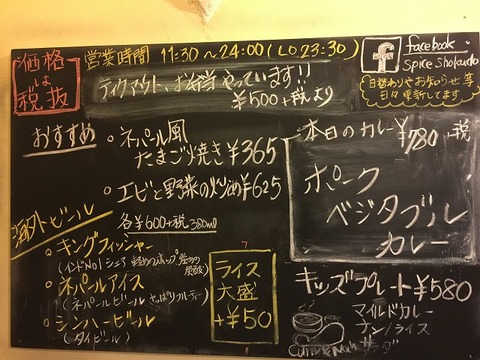 価格は税抜
営業時間 11:30～24:00 (LO 23:30)
facebook
spice shokudo
日替わりやお知らせ等
日々更新してます
テイクアウト、お弁当やっています!!
¥500+税より
おすすめ
・ネパール風
たまご焼き¥365
・エビと野菜の炒め¥625
本日のカレー¥780+税
ポーク
ベジタブル
カレー
海外ビール
各¥600+税 380ml
・キングフィッシャー
(インドNo1シェア
・ネパールアイス
(ネパールビール さっぱりフルーティー)
・シンハービール
(タイビール)
ライス
大盛
+¥50
キッズプレート¥580
マイルドカレー
ナン/ライス
サラダ